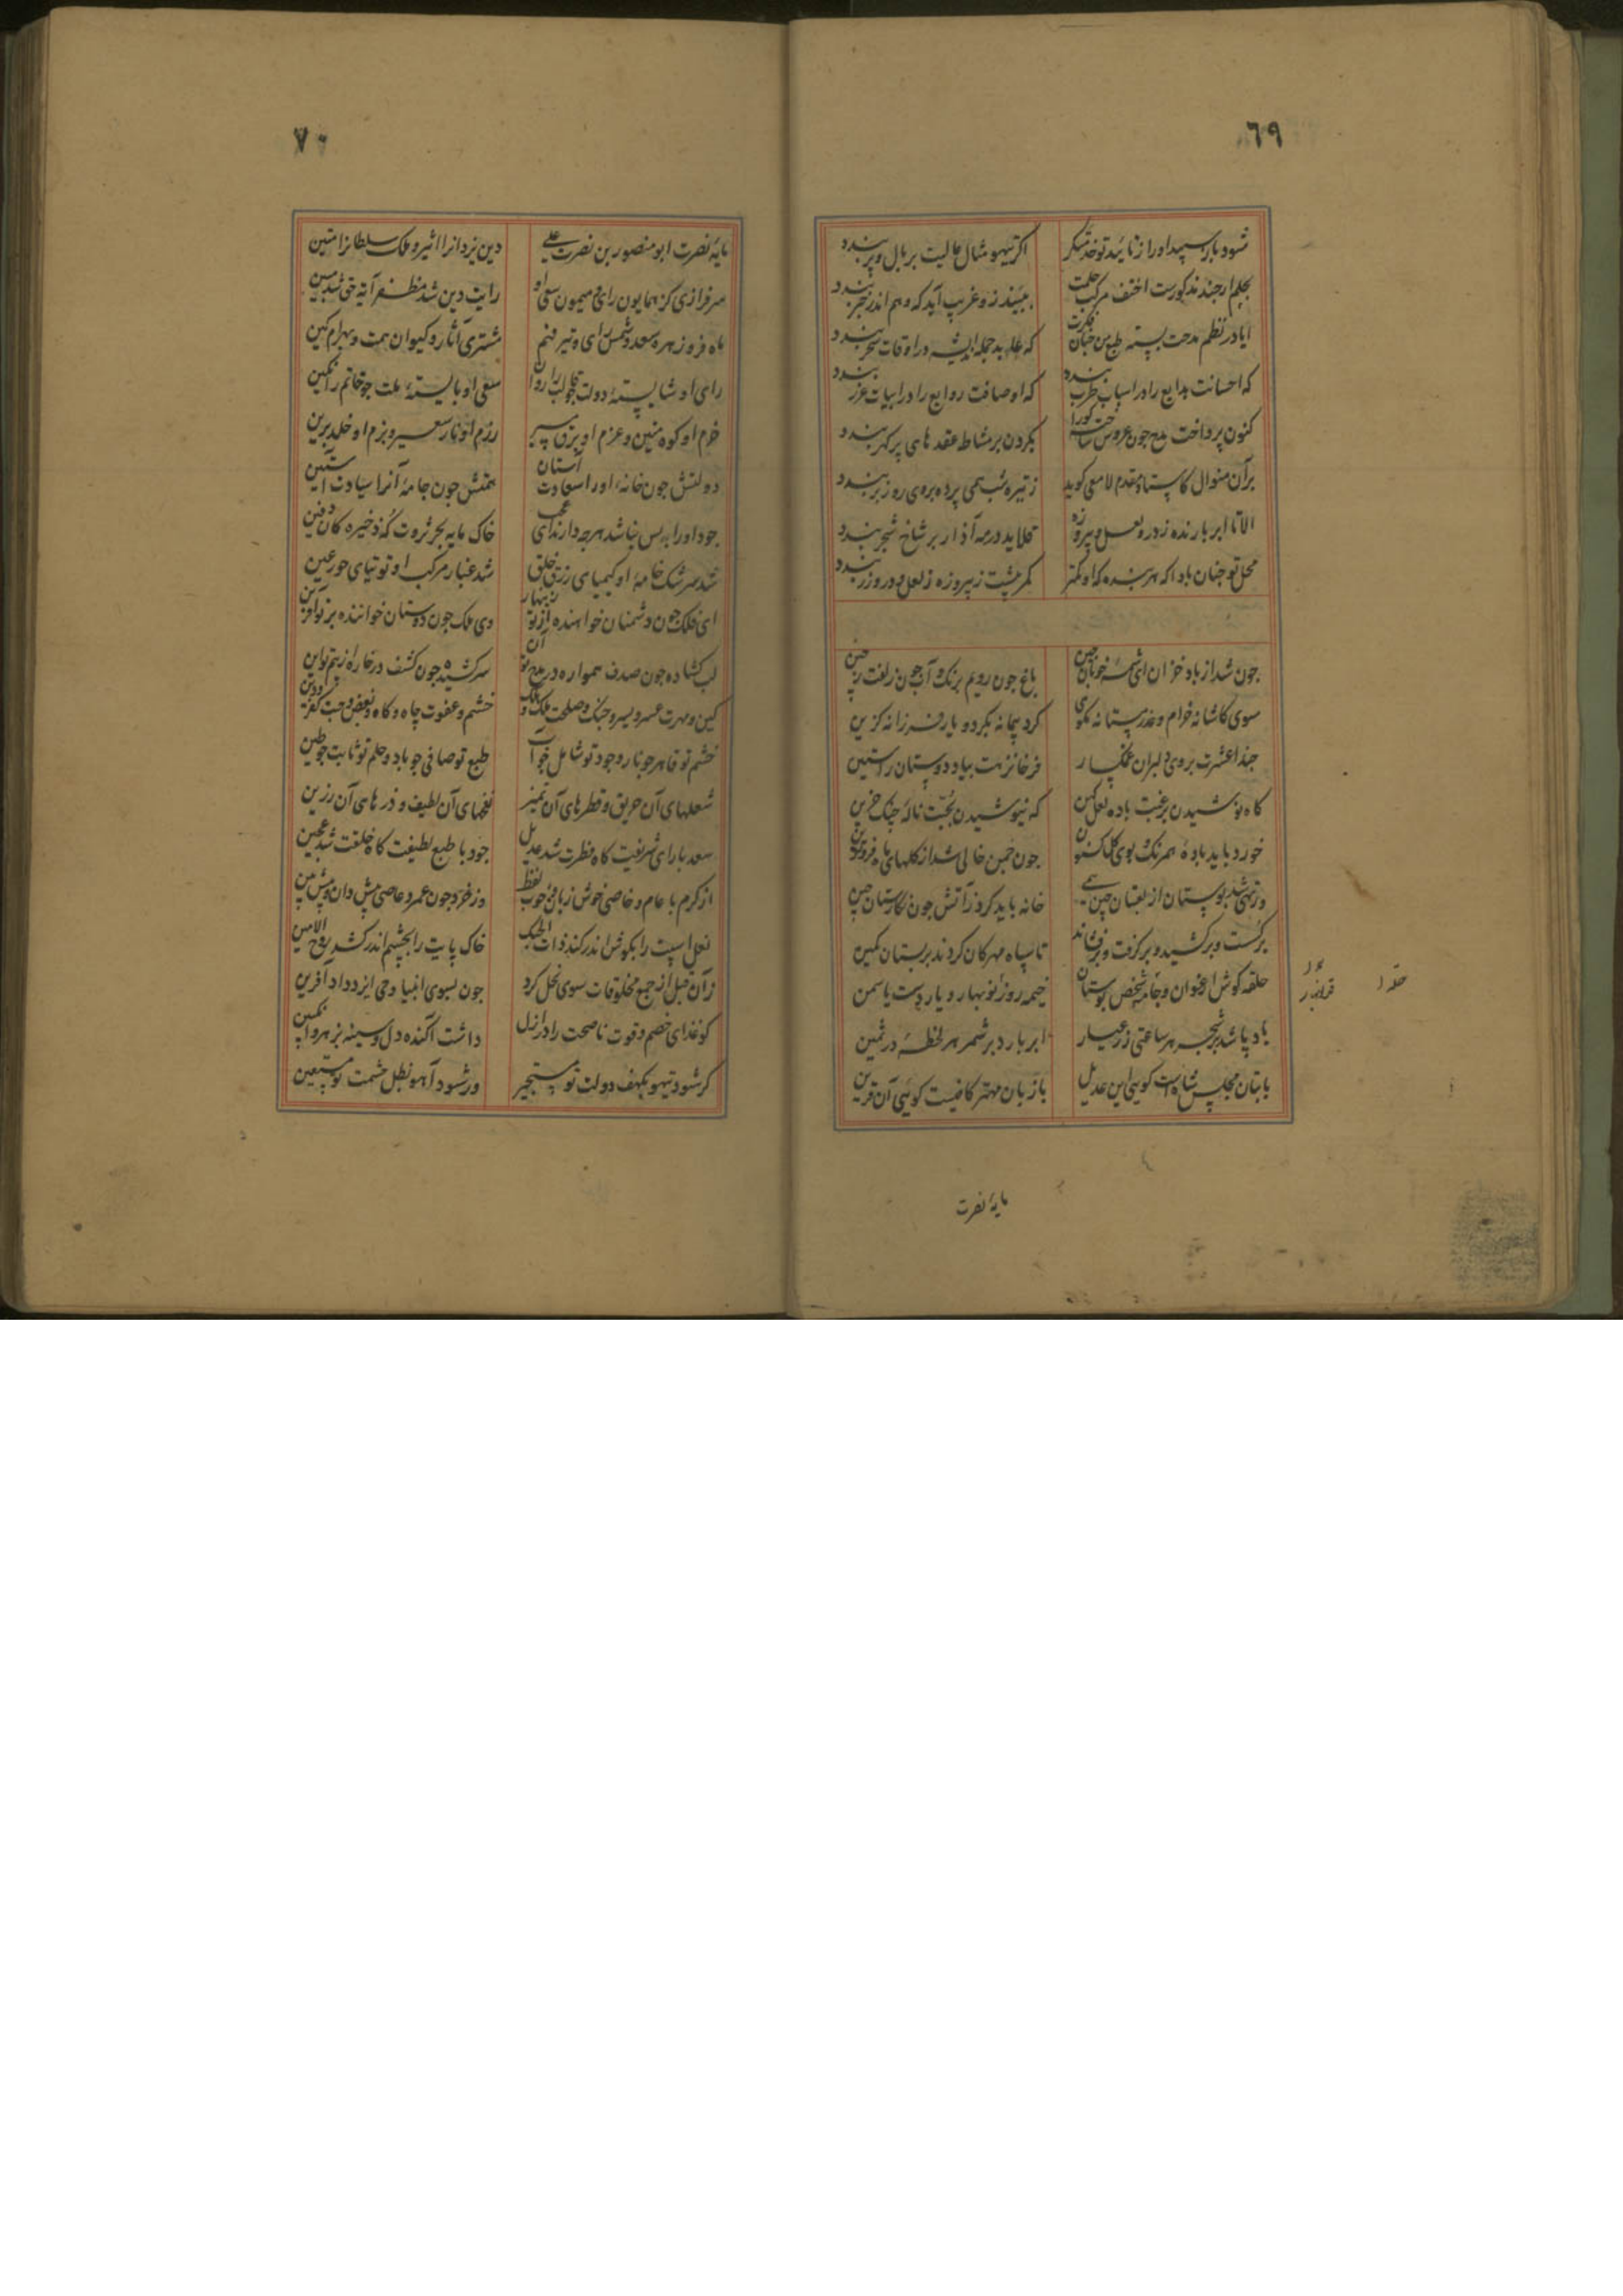 ٦٩
شود باز سپید او را از تائید تو خدمتگر
اکر تیهو مثال عالیت بر بال و پر بندد
بحلم ارجند مذکورست احنف مرکب حلمت
ببیند زو غریب آید که وهم اندر حجر بندد
ایا در نظم مدحت بسته طبع من جنان فکرت
که علوید جمله در اوقات سحر بندد
که احسانت بدایع را در اسباب طرب بندد
که اوصافت روایع را در ابیات غرر بندد
کنون پرداخت مدح جون عروس ساخته کورا
بکردن بر مشاط عقد های پر کهر بندد
بر آن منوال کاستاد مقدم لامعی کوید
ز تیره شب همی پرده بروی روز بر بندد
الا تا ابر بارنده ز در و لعل و پیروزه
قلاید در مه آذار بر شاخ شجر بندد
محل تو جنان بادا که هر بنده که او کمتر
کمر پشت ز پیروزه ز لعل و در و زر بندد
جون شد از باد خزان ای شمسهٔ خوبان جین
باغ جون رویم برنک و آب جون زلفت بچین
سوی کاشانه خرام و عذر بستانه بکوی
کرد پیمانه بکرد و یار فرزانه کزین
حبذا عشرت بروی دلبران غمکسار
فرخا نزهت بیاد دوستان راستین
کاه نوشیدن برغبت باده لعل کهن
که نیوشیدن بحبت نالهٔ جنک حزین
خورد باید بادهٔ همرنک بوی کل کنون
جون جمن خالی شد از کلهای ماه فرودین
ور تهی شد بوستان از لعبتان جین همی
خانه باید کرد ز آتش جون نکارستان جین
بر کست و بر کشید و بر کرفت و بر فشاند
تا سپاه مهرکان کردند بر بستان کمین
حلقه کوش ارغوان و جامه شخص بوستان
خیمه روز نو بهار و یاره دست یاسمن
باد پاشد بر شجر هر ساعتی زر عیار
ابر بارد بر شمر هر لحظهٔ در ثمین
با بتان مجلس شاه است کویی این عدیل
با زبان مهتر کافیست کوئی آن قرین
حله ر
مایهٔ نصرت
٧٠
مایهٔ نصرت ابو منصور بن نصرت علی
دین یزدانرا اثیر و ملک سلطانرا متین
سرفرازی کز همایون رای و میمون سعی او
رایت دین شد مظفر آیة حق شد مبین
ماه فر و زهره سعد و شمس رای و تیر فهم
مشتری آثار و کیوان همت و بهرام کین
رای او شایستهٔ دولت جو قالب را روان
سعی او بایستهٔ ملت جو خاتم را نکین
حزم او کوه متین و عزم او برق مسیر
رزم او نار سعیر و بزم او خلد برین
دولتش جون خانهٔ او را سعادت آستان
همتش جون جامهٔ آنرا سیادت آستین
جود او را بس نباشد هرجه دارند ای عجب
خاک مایه بحر ثروت که ذخیره کان دفین
شد سرشک خامهٔ او کیمیای رزق خلق
شد غبار مرکب او توتیای حور عین
ای فلک جون دشمنان خواهنده از تو زینهار
وی ملک جون دوستان خواننده بر تو آفرین
لب کشاده جون صدف همواره در مدح تو آن
سر کشیده جون کشف در خاره از بیم تو این
کین و مهرت عسر و یسر و جنک و صلحت ملک و هلک
خشم و عفوت جاه و کاه و بغض و حبت کفر و دین
خشم تو قاهر جو نار و جود تو شامل جو آب
طبع تو صافی جو باد و حلم تو ثابت جو طین
شعلهای آن حریق و قطرهای آن نمیر
نفحهای آن لطیف و ذرهای آن رزین
سعد با رای شریفت کاه فطرت شد عدیل
جود با طبع لطیفت کاه خلقت شد عجین
از کرم با عام و خاصی خوش زبان و خوب لفظ
وز خرد جون عمرو عاصی پیش دان و پیش بین
نعل اسپت را بکوش اندر کند ذات الحبک
خاک پایت را بچشم اندر کشد روح الامین
زان قبل از جمع مخلوقات سوی نحل کرد
جون بسوی انبیا وحی ایزد داد آفرین
کو غذای خصم و قوت ناصحت را در ازل
داشت آکنده دل و سینه بزهر و انکبین
کر شود تیهو بکهف دولت تو مستجیر
ور شود آهو بظل حشمت تو مستعین